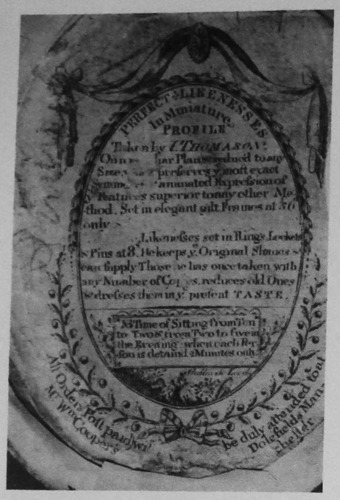 PERFECT LIKENESSES
In Miniature
PROFILE
Taken by I. THOMASON
Plan reduced to any
preserves y most exact
animated Expression of
y Features superior to any other Me
thod. Set in elegant gilt Frames at
only
Likenesses set in Rings, Lockets
& Pins at 8. He keeps y Original Shades &
can supply Those he has once taken with
any Number of Copies, reduces old Ones
& dresses them in y present TASTE
NB Time of Sitting from Ten
to Two & from Two to five in
the Evening when each Per
son is detain'd 2 Minutes only
All Orders Post paid wt
Mr Wm Coopers
be duly attended to
Dolefields Man
chester